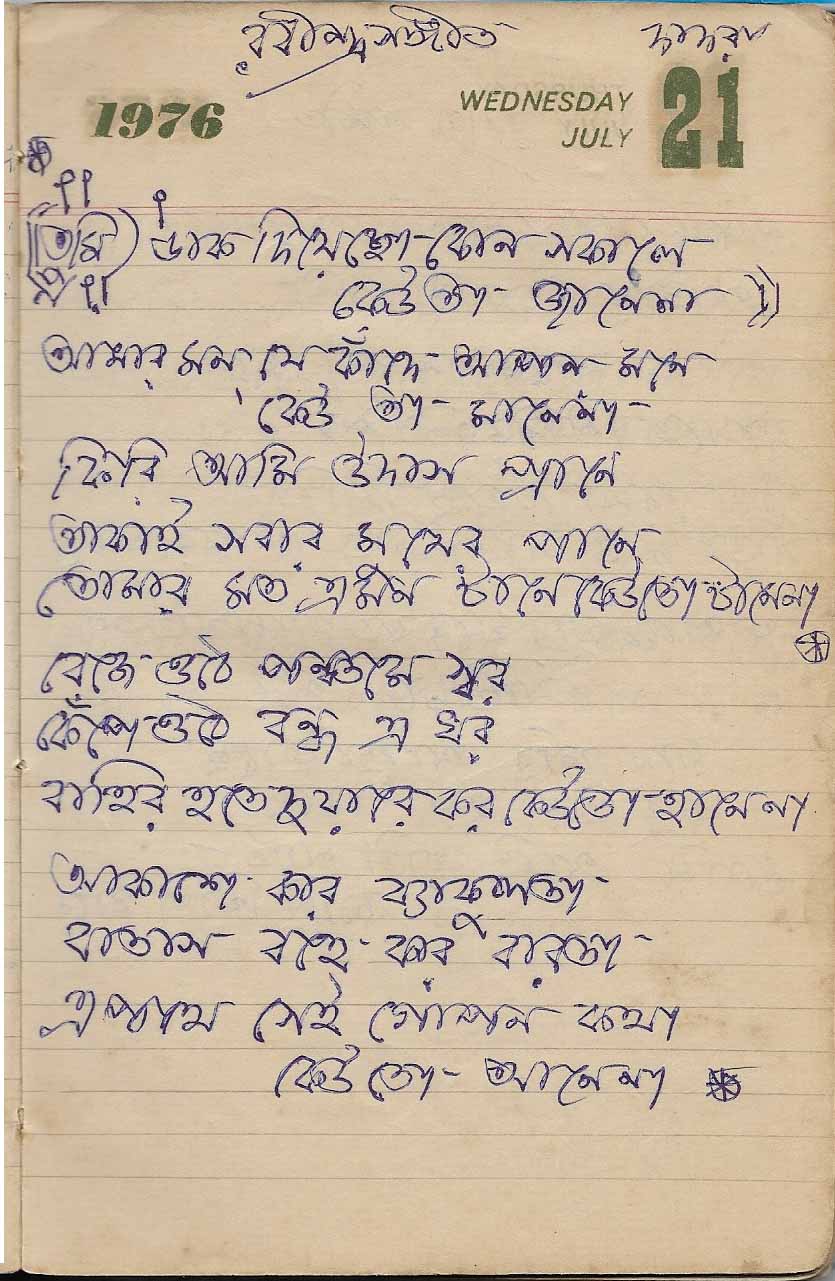 রবীন্দ্রসঙ্গীত দাদরা
1976 WEDNESDAY JULY 21
(তুমি) ডাক দিয়েছো কোন সকালে
কেউ তা জানেনা
আমার মন যে কাঁদে আপন মনে
কেউ তা মানেনা
ফিরি আমি উদাস প্রানে
তাকাই সবার মুখের পানে
তোমার মত এমন টানে কেউতো টানেনা
বেজে ওঠে পঞ্চমে স্বর
কেঁপে ওঠে বন্ধ এ ঘর
বাহির হতে দুয়ারে কর কেউতো হানেনা
আকাশে কার ব্যাকুলতা
বাতাস বহে কার বারতা
এ পথে সেই গোপন কথা
কেউ তো আনেনা